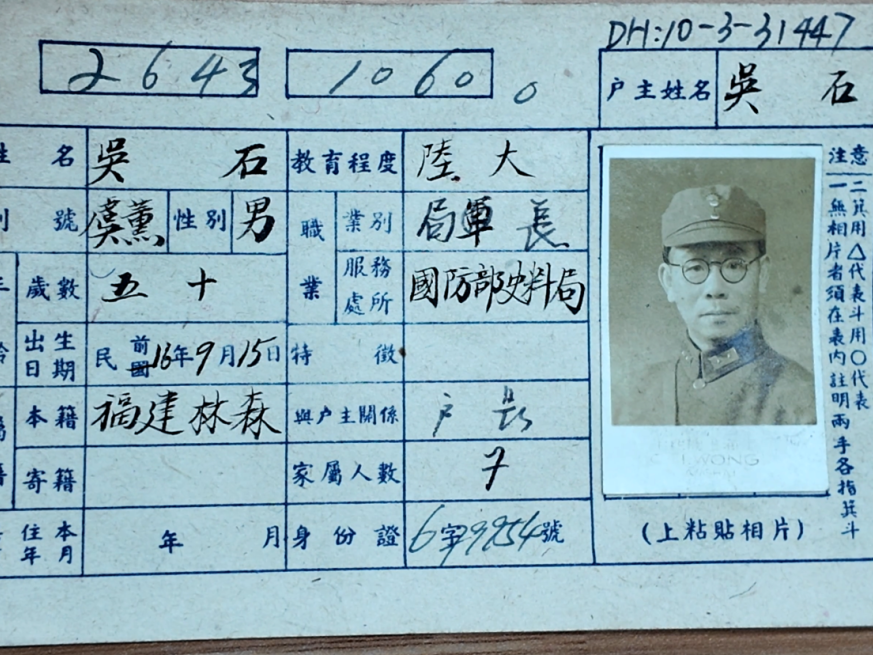 DH:10-3-31447
2643
1060
0
户主姓名 吳石
姓名 吳石 教育程度 陸大
別號 虞薰 性別 男 職業 業別 軍 局長
歲數 五十 服務處所 國防部史料局
出生日期 民前16年9月15日 特徵
本籍 福建林森 與户主關係 户長
寄籍 家屬人數 7
住本年月 年 月 身份證 6字9954號
注意
一無相片者須在表內註明兩手各指箕斗
二箕用△代表斗用○代表
WONG
(上粘貼相片)